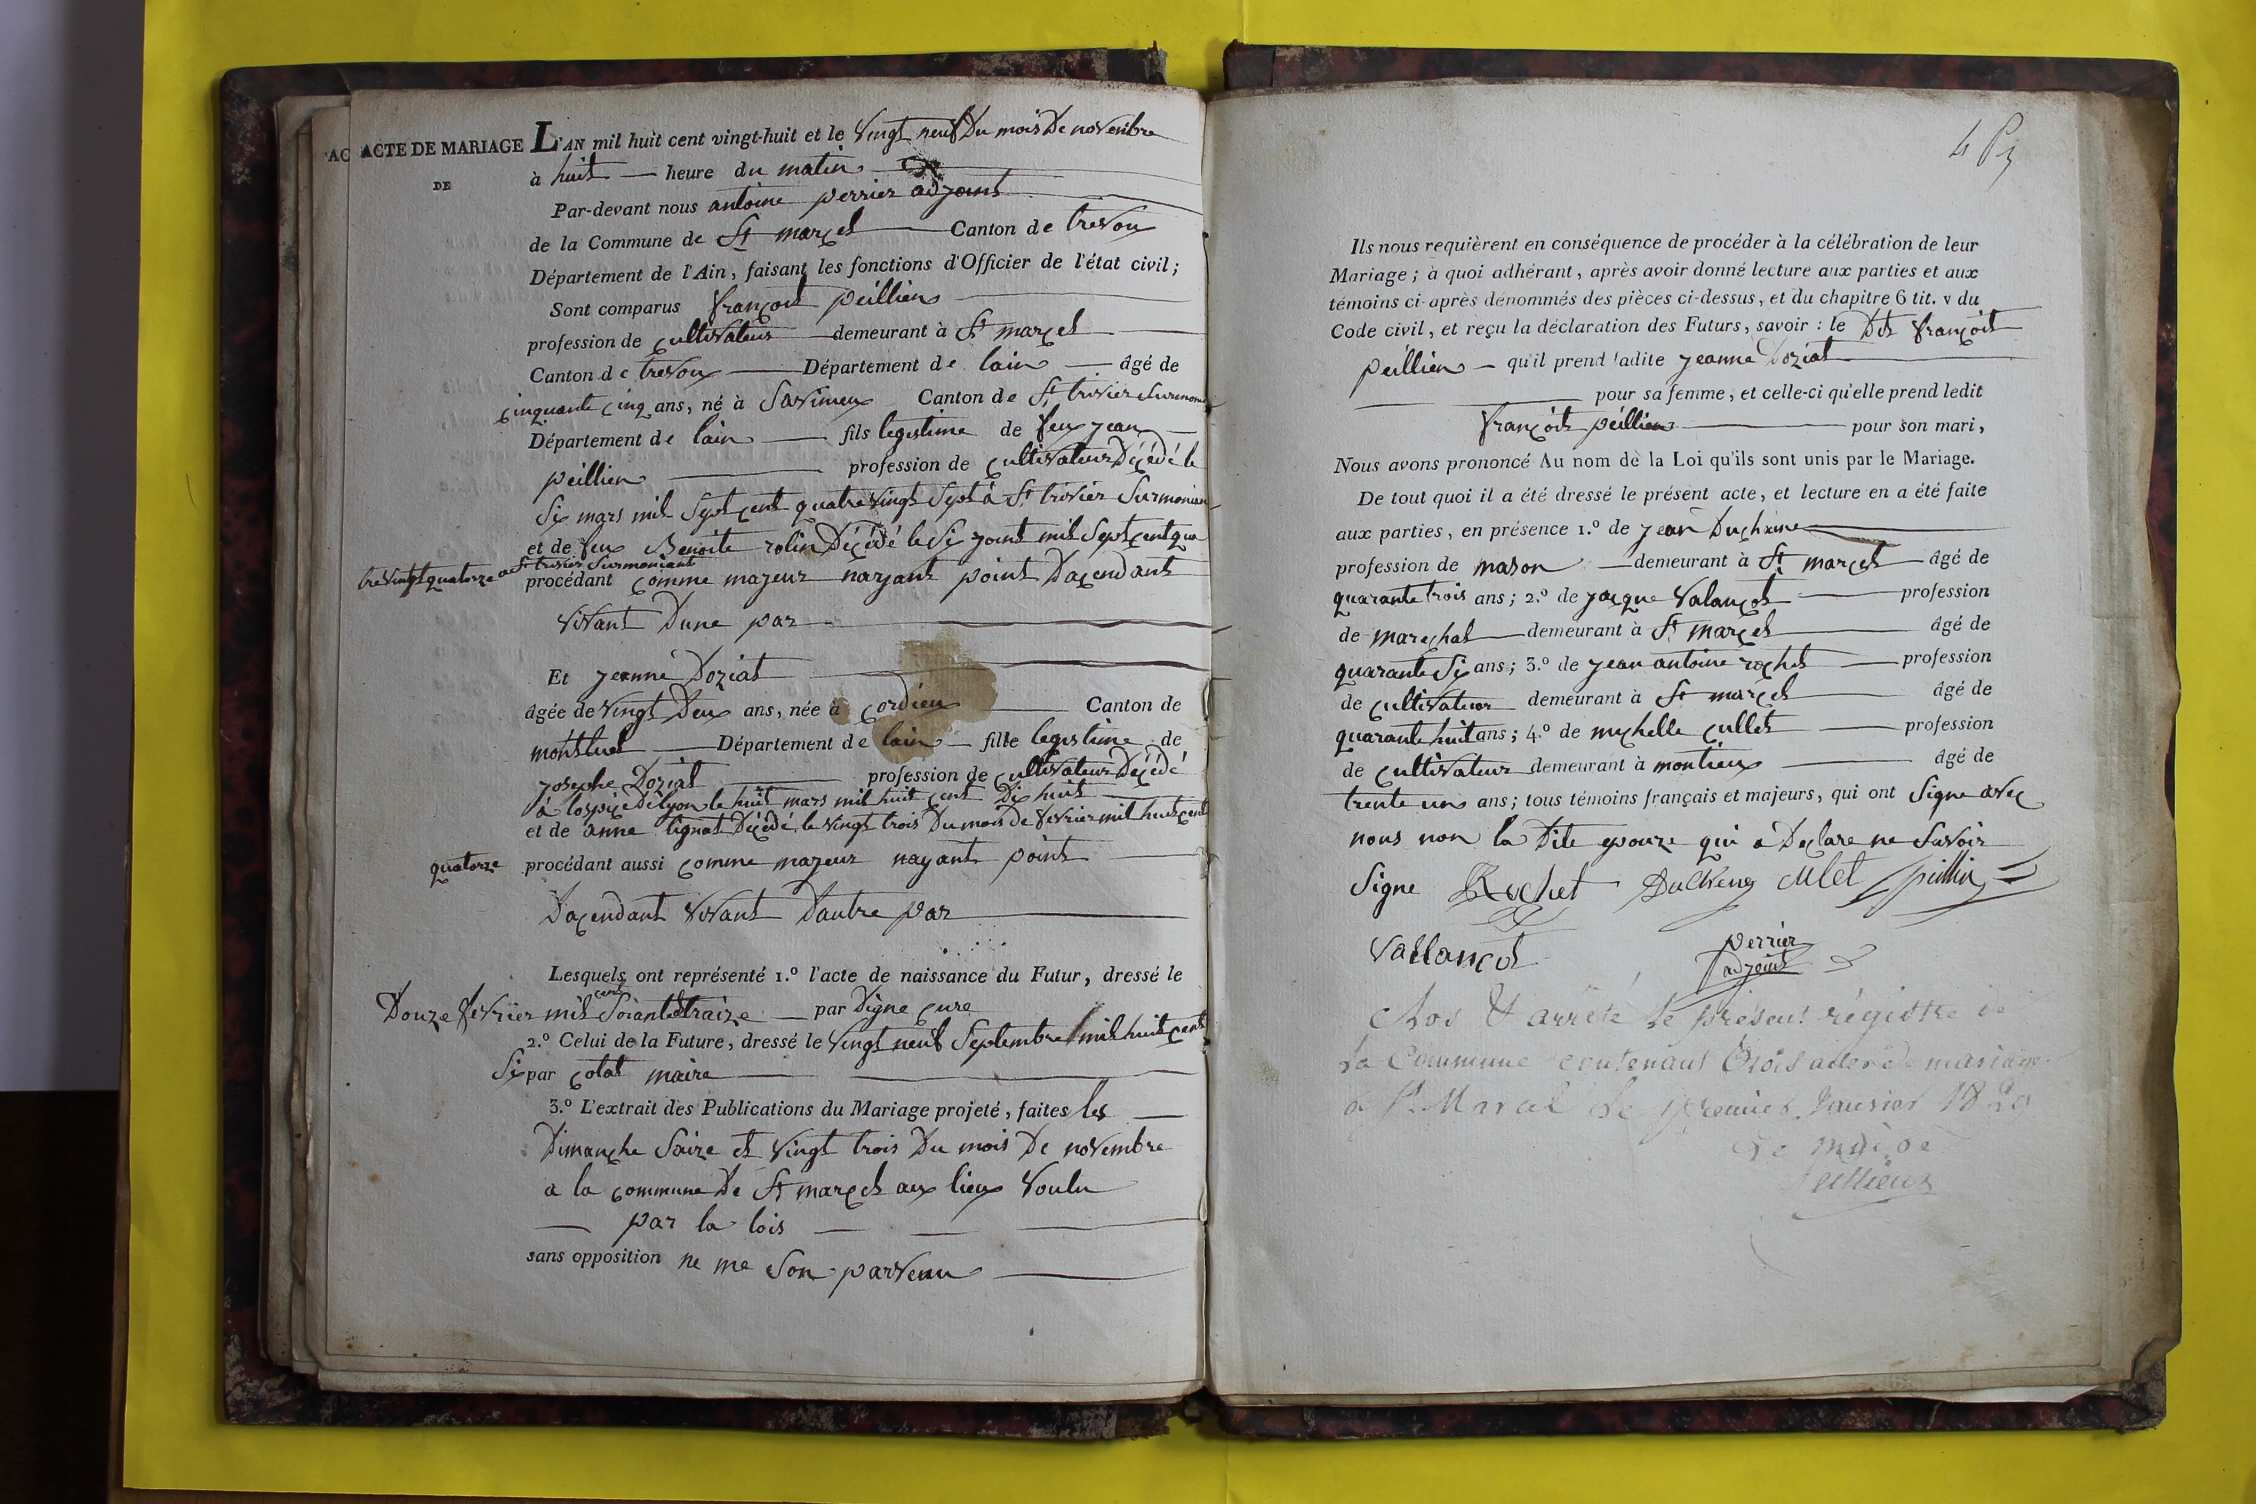 ACTE DE MARIAGE
DE
L'AN mil huit cent vingt-huit et le vingt neuf Du mois De novembre
à huit heure du matin
Par-devant nous antoine perrier adjoint
de la Commune de St marcel Canton de trevou
Département de l'Ain, faisant les fonctions d'Officier de l'état civil;
Sont comparus françois peillien
profession de cultivateur demeurant à St marcel
Canton de trevou Département de lain âgé de
cinquante cinq ans, né à Savineux Canton de St trivier
Département de lain fils legistime de feu jean
peillien profession de cultivateur Décédé le
Six mars mil Sept cent quatre vingt Sept à St trivier Surmonian
et de feu Benoite rolin Décédé le Six joint mil Sept cent qua
tre vingt quatorze a St trivier Surmoniant
procédant comme majeur nayant point Dacendant
vivant Dune par
Et jeanne Doziat
âgée de vingt Deux ans, née à cordieu Canton de
montluel Département de lain fille legistime de
josephe Doziat profession de cultivateur Décédé
à lospice de lyon le huit mars mil huit cent Dix huit
et de anne lignat Décédé le vingt trois Du mois de fevrier mil huit cent
quatorze procédant aussi comme majeur nayant point
Dacendant vivant Dautre par
Lesquels ont représenté 1.º l'acte de naissance du Futur, dressé le
Douze fevrier mil cent Soiante traize par Digne cure
2.º Celui de la Future, dressé le vingt neuf Septembre mil huit cent
Six par cotat maire
3.º L'extrait des Publications du Mariage projeté, faites les
Dimanche Saize et vingt trois Du mois De novembre
a la commune De St marcel aux lieux voulu
par la lois
sans opposition ne me son parvenu
Ils nous requièrent en conséquence de procéder à la célébration de leur
Mariage; à quoi adhérant, après avoir donné lecture aux parties et aux
témoins ci-après dénommés des pièces ci-dessus, et du chapitre 6 tit. v du
Code civil, et reçu la déclaration des Futurs, savoir: le Dit françois
peillien qu'il prend ladite jeanne Doziat
pour sa femme, et celle-ci qu'elle prend ledit
françois peillien pour son mari,
Nous avons prononcé Au nom de la Loi qu'ils sont unis par le Mariage.
De tout quoi il a été dressé le présent acte, et lecture en a été faite
aux parties, en présence 1.º de jean Duchaine
profession de mason demeurant à St marcel âgé de
quarante trois ans; 2.º de jacque valançot profession
de marechal demeurant à St marcel âgé de
quarante Six ans; 3.º de jean antoine rochet profession
de cultivateur demeurant à St marcel âgé de
quarante huit ans; 4.º de michelle cullet profession
de cultivateur demeurant à montieu âgé de
trente un ans; tous témoins français et majeurs, qui ont Signe avec
nous non la Dite epouze qui a Declare ne Savoir
Signe Rochet Ducheng Culet peillien
Vallançot perrier
adjoint
Clos et arrêté le présent régistre de
la Commune contenant trois actes de mariage
a St Marcel le premier Janvier 1829
Le maire
Peillieux